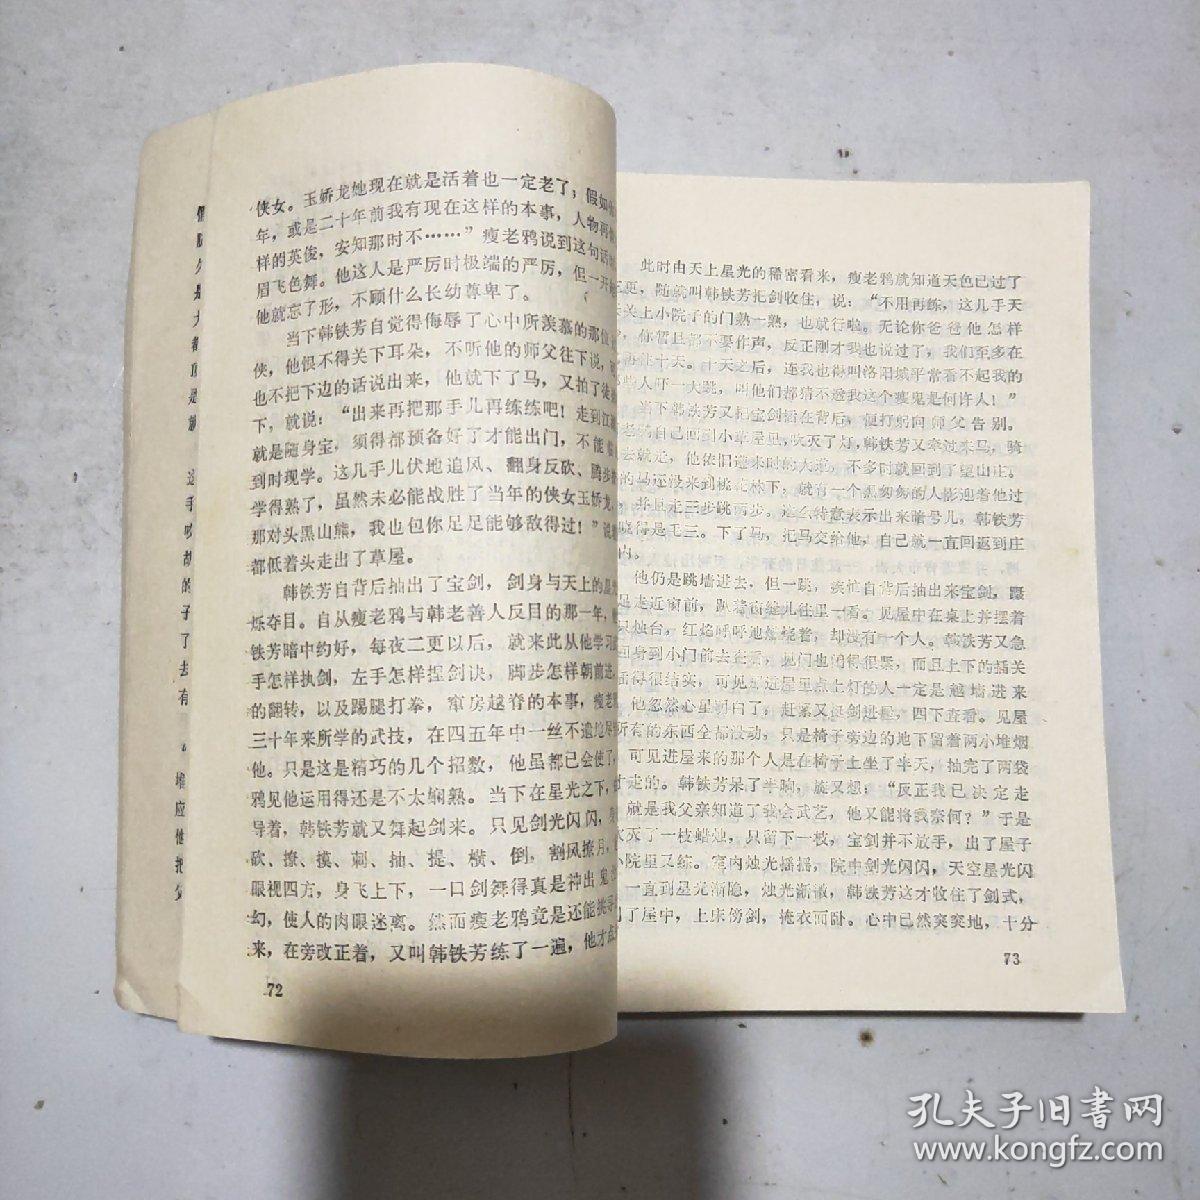 侠女。玉娇龙她现在就是活着也一定老了；假如
年，或是二十年前我有现在这样的本事，人物再
样的英俊，安知那时不……”瘦老鸦说到这句话
眉飞色舞。他这人是严厉时极端的严厉，但一开
他就忘了形，不顾什么长幼尊卑了。
当下韩铁芳自觉得侮辱了心中所羡慕的那位
侠，他恨不得关下耳朵，不听他的师父往下说，
也不把下边的话说出来，他就下了马，又拍了徒
下，就说：“出来再把那手儿再练练吧！走到江
就是随身宝，须得都预备好了才能出门，不能
到时现学。这几手儿伏地追风、翻身反砍、腾步
学得熟了，虽然未必能战胜了当年的侠女玉娇龙，
那对头黑山熊，我也包你足足能够敌得过！”说
都低着头走出了草屋。
韩铁芳自背后抽出了宝剑，剑身与天上的星
烁夺目。自从瘦老鸦与韩老善人反目的那一年，
铁芳暗中约好，每夜二更以后，就来此从他学习
手怎样执剑，左手怎样捏剑诀，脚步怎样朝前进，
的翻转，以及踢腿打拳，窜房越脊的本事，瘦老
三十年来所学的武技，在四五年中一丝不遗地
他。只是这是精巧的几个招数，他虽都已会使了，
鸦见他运用得还是不太娴熟。当下在星光之下，
导着，韩铁芳就又舞起剑来。只见剑光闪闪，
砍、撩、摸、刺、抽、提、横、倒，割风撩月，
眼视四方，身飞上下，一口剑舞得真是神出鬼
幻，使人的肉眼迷离。然而瘦老鸦竟是还能挑寻
来，在旁改正着，又叫韩铁芳练了一遍，他才点
72
此时由天上星光的稀密看来，瘦老鸦就知道天色已过了
三更，随就叫韩铁芳把剑收住，说：“不用再练，这几手天
天关上小院子的门熟一熟，也就行啦。无论你爸爸他怎样
，你暂且都不要作声，反正刚才我也说过了，我们至多在
再住十天。十天之后，连我也得叫洛阳城平常看不起我的
那些人吓一大跳，叫他们都猜不透我这个瘦鬼是何许人！”
当下韩铁芳又把宝剑插在背后，便打躬向师父告别。
老鸦自己回到小草屋里，吹灭了灯，韩铁芳又牵过来马，骑
去就走，他依旧进来时的大道，不多时就回到了望山庄。
的马还没来到桃花林下，就有一个黑匆匆的人影迎着他过
，并且走三步跳两步，这么特意表示出来暗号儿，韩铁芳
晓得是毛三。下了马，把马交给他，自己就一直回返到庄
内。
他仍是跳墙进去，但一跳，疾忙自背后抽出来宝剑，蹑
足走近窗前，趴着窗缝儿往里一看。见屋中在桌上并摆着
只烛台，红焰呼呼地燃烧着，却没有一个人。韩铁芳又急
回身到小门前去查看，见门也闭得很紧，而且上下的插关
插得很结实，可见那进屋里点上灯的人一定是越墙进来
。他忽然心里明白了，赶紧又提剑进屋，四下查看。见屋
所有的东西全都没动，只是椅子旁边的地下留着两小堆烟
，可见进屋来的那个人是在椅子上坐了半天，抽完了两袋
才走的。韩铁芳呆了半晌，旋又想：“反正我已决定走
，就是我父亲知道了我会武艺，他又能将我奈何？”于是
吹灭了一枝蜡烛，只留下一枝，宝剑并不放手，出了屋子
小院里又练。室内烛光摇摇，院中剑光闪闪，天空星光闪
，一直到星光渐隐，烛光渐微，韩铁芳这才收住了剑式，
到了屋中，上床傍剑，掩衣而卧。心中已然突突地，十分
73
孔夫子旧书网
www.kongfz.com